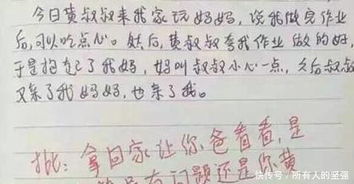 今日黄叔叔来我家玩妈妈，说我做完作业
后，可以吃点心。然后，黄叔叔夸我作业做的好，
于是抱起了我妈，妈叫叔叔小心一点，
又亲了我妈妈，也亲了我。
批：拿回家让你爸看看，是
有问题还是你黄
快传号/所有人的坚强